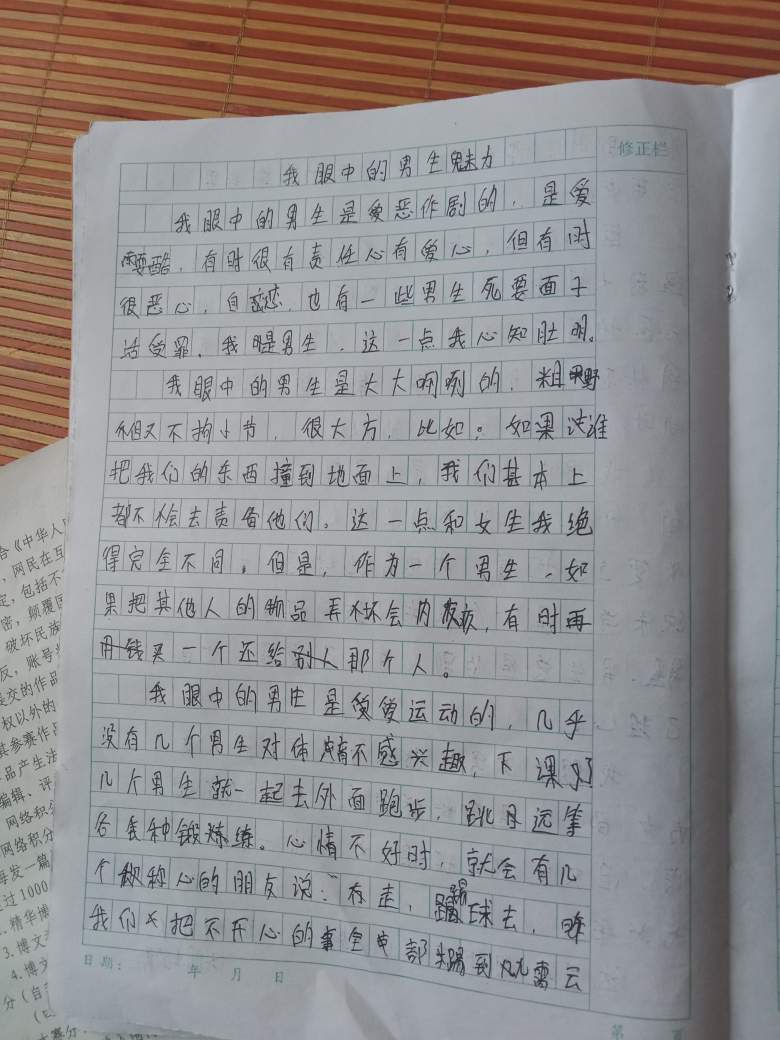 修正栏
我眼中的男生魅力
我眼中的男生是爱恶作剧的，是爱
耍酷，有时很有责任心有爱心，但有时
很恶心，自恋，也有一些男生死要面子
活受罪。我是男生，这一点我心知肚明。
我眼中的男生是大大咧咧的，粗野
但又不拘小节，很大方，比如。如果谁
把我们的东西撞到地面上，我们基本上
都不会去责备他们。这一点和女生我绝
得完全不同。但是，作为一个男生，如
果把其他人的物品弄坏会内疚，有时再
用钱买一个还给那个人。
我眼中的男生是爱运动的，几乎
没有几个男生对体育不感兴趣，下课好
几个男生就一起去外面跑步，跳远等
各种锻练。心情不好时，就会有几
个称心的朋友说：“走，踢球去，
我们把不开心的事全部踢到九霄云
日期： 年 月 日
第 页
合《中华人
，网民在互
定，包括不
密，颠覆国
破坏民族
反，账号
提交的作品
权以外的
其参赛作品
品产生法
编辑、评
网络积分
网络积分
每发一篇
过1000
1.精华博
3.博文
4.博文
分（自